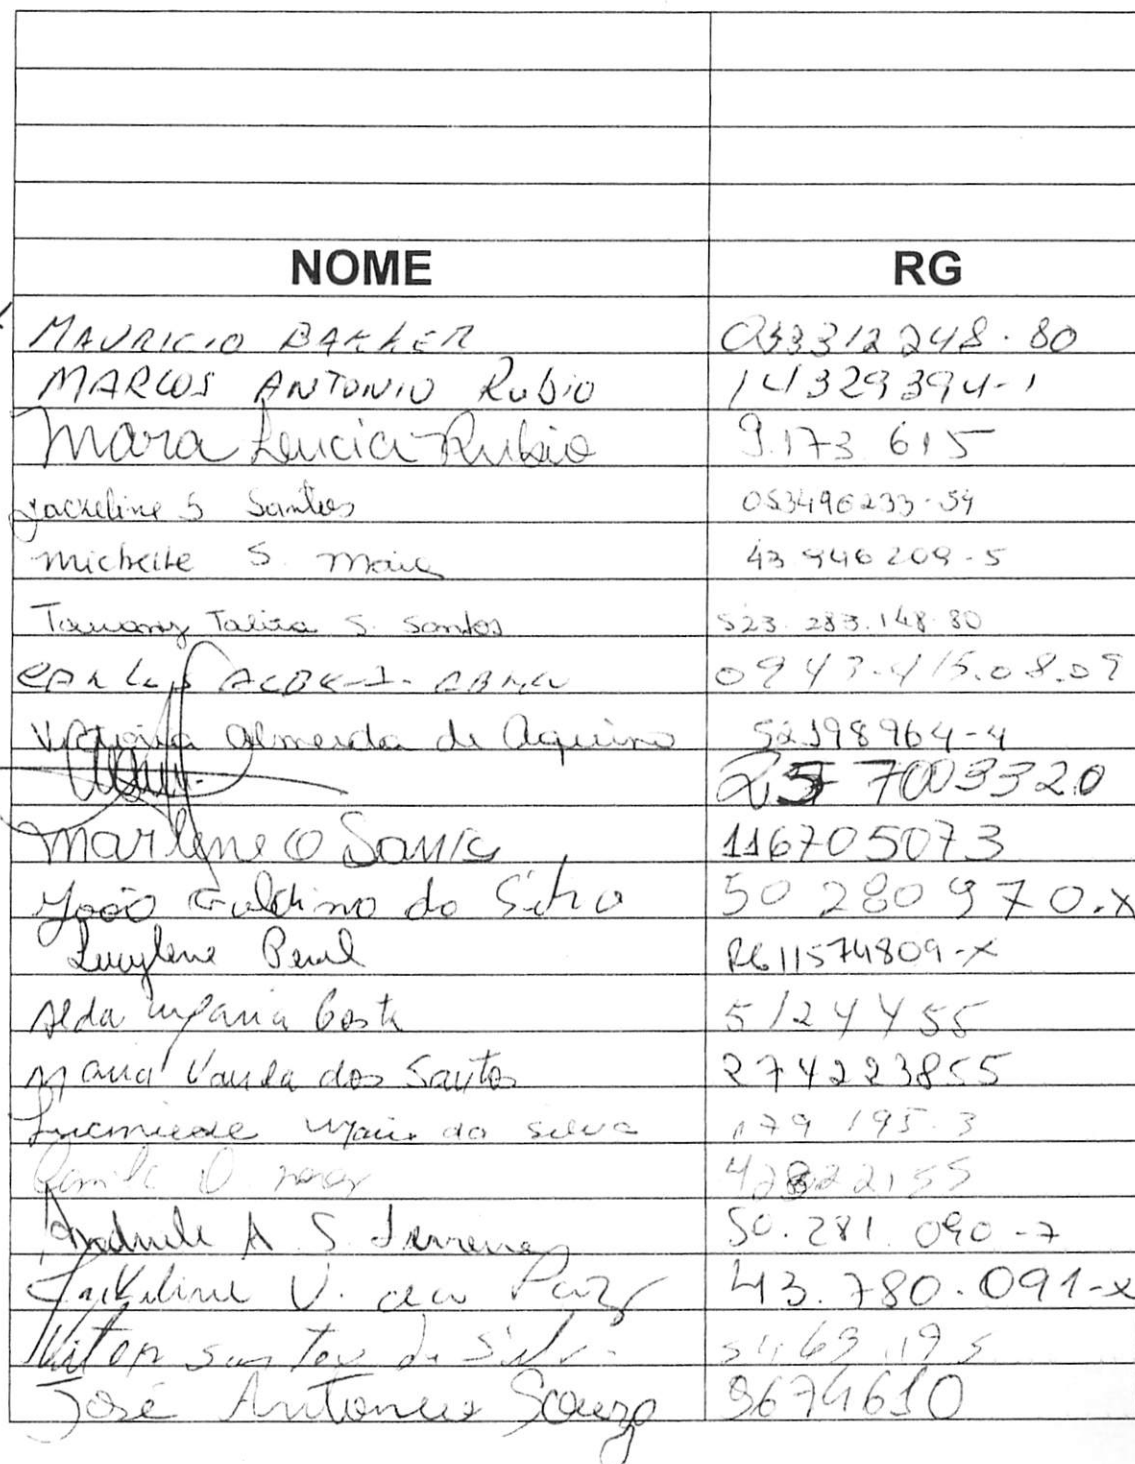 NOME RG
MAURICIO BAKKER 033312248-80
MARCOS ANTONIO RUBIO 14329394-1
Mara Lucia Rubio 9.173 615
Jackeline S Santos 053496233-54
Michelle S. Maia 43 946 209-5
Tawany Talita S. Santos 523.283.148.80
CARLOS
Almeida de Aquino 52198964-4
7003320
Marlene O 116705073
João Galdino da Silva 50 280 970.X
Lucylene RG 11574809-X
Alda Maria Costa 5124455
Maria Vanda dos Santos 274223855
Maria da Silva 179 195.3
A. S. Ferreira 50.281.090-7
Jakeline V. da Paz 43.780.091-x
Vitor Santos da Silva
José Antonio Souza 9674610